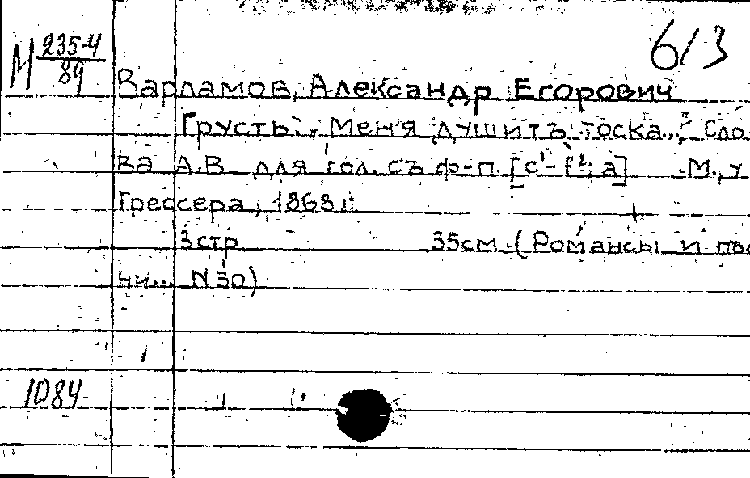 6/3
М 235-4
89
Варламов, Александр Егорович
Грусть. „Меня душитъ тоска..." Сло-
ва А.В. для гол. съ ф-п. [c¹-f², a] М., у
Грессера, 1868 г.
3 стр. 35см. (Романсы и пес-
ни... N 30)
1D84